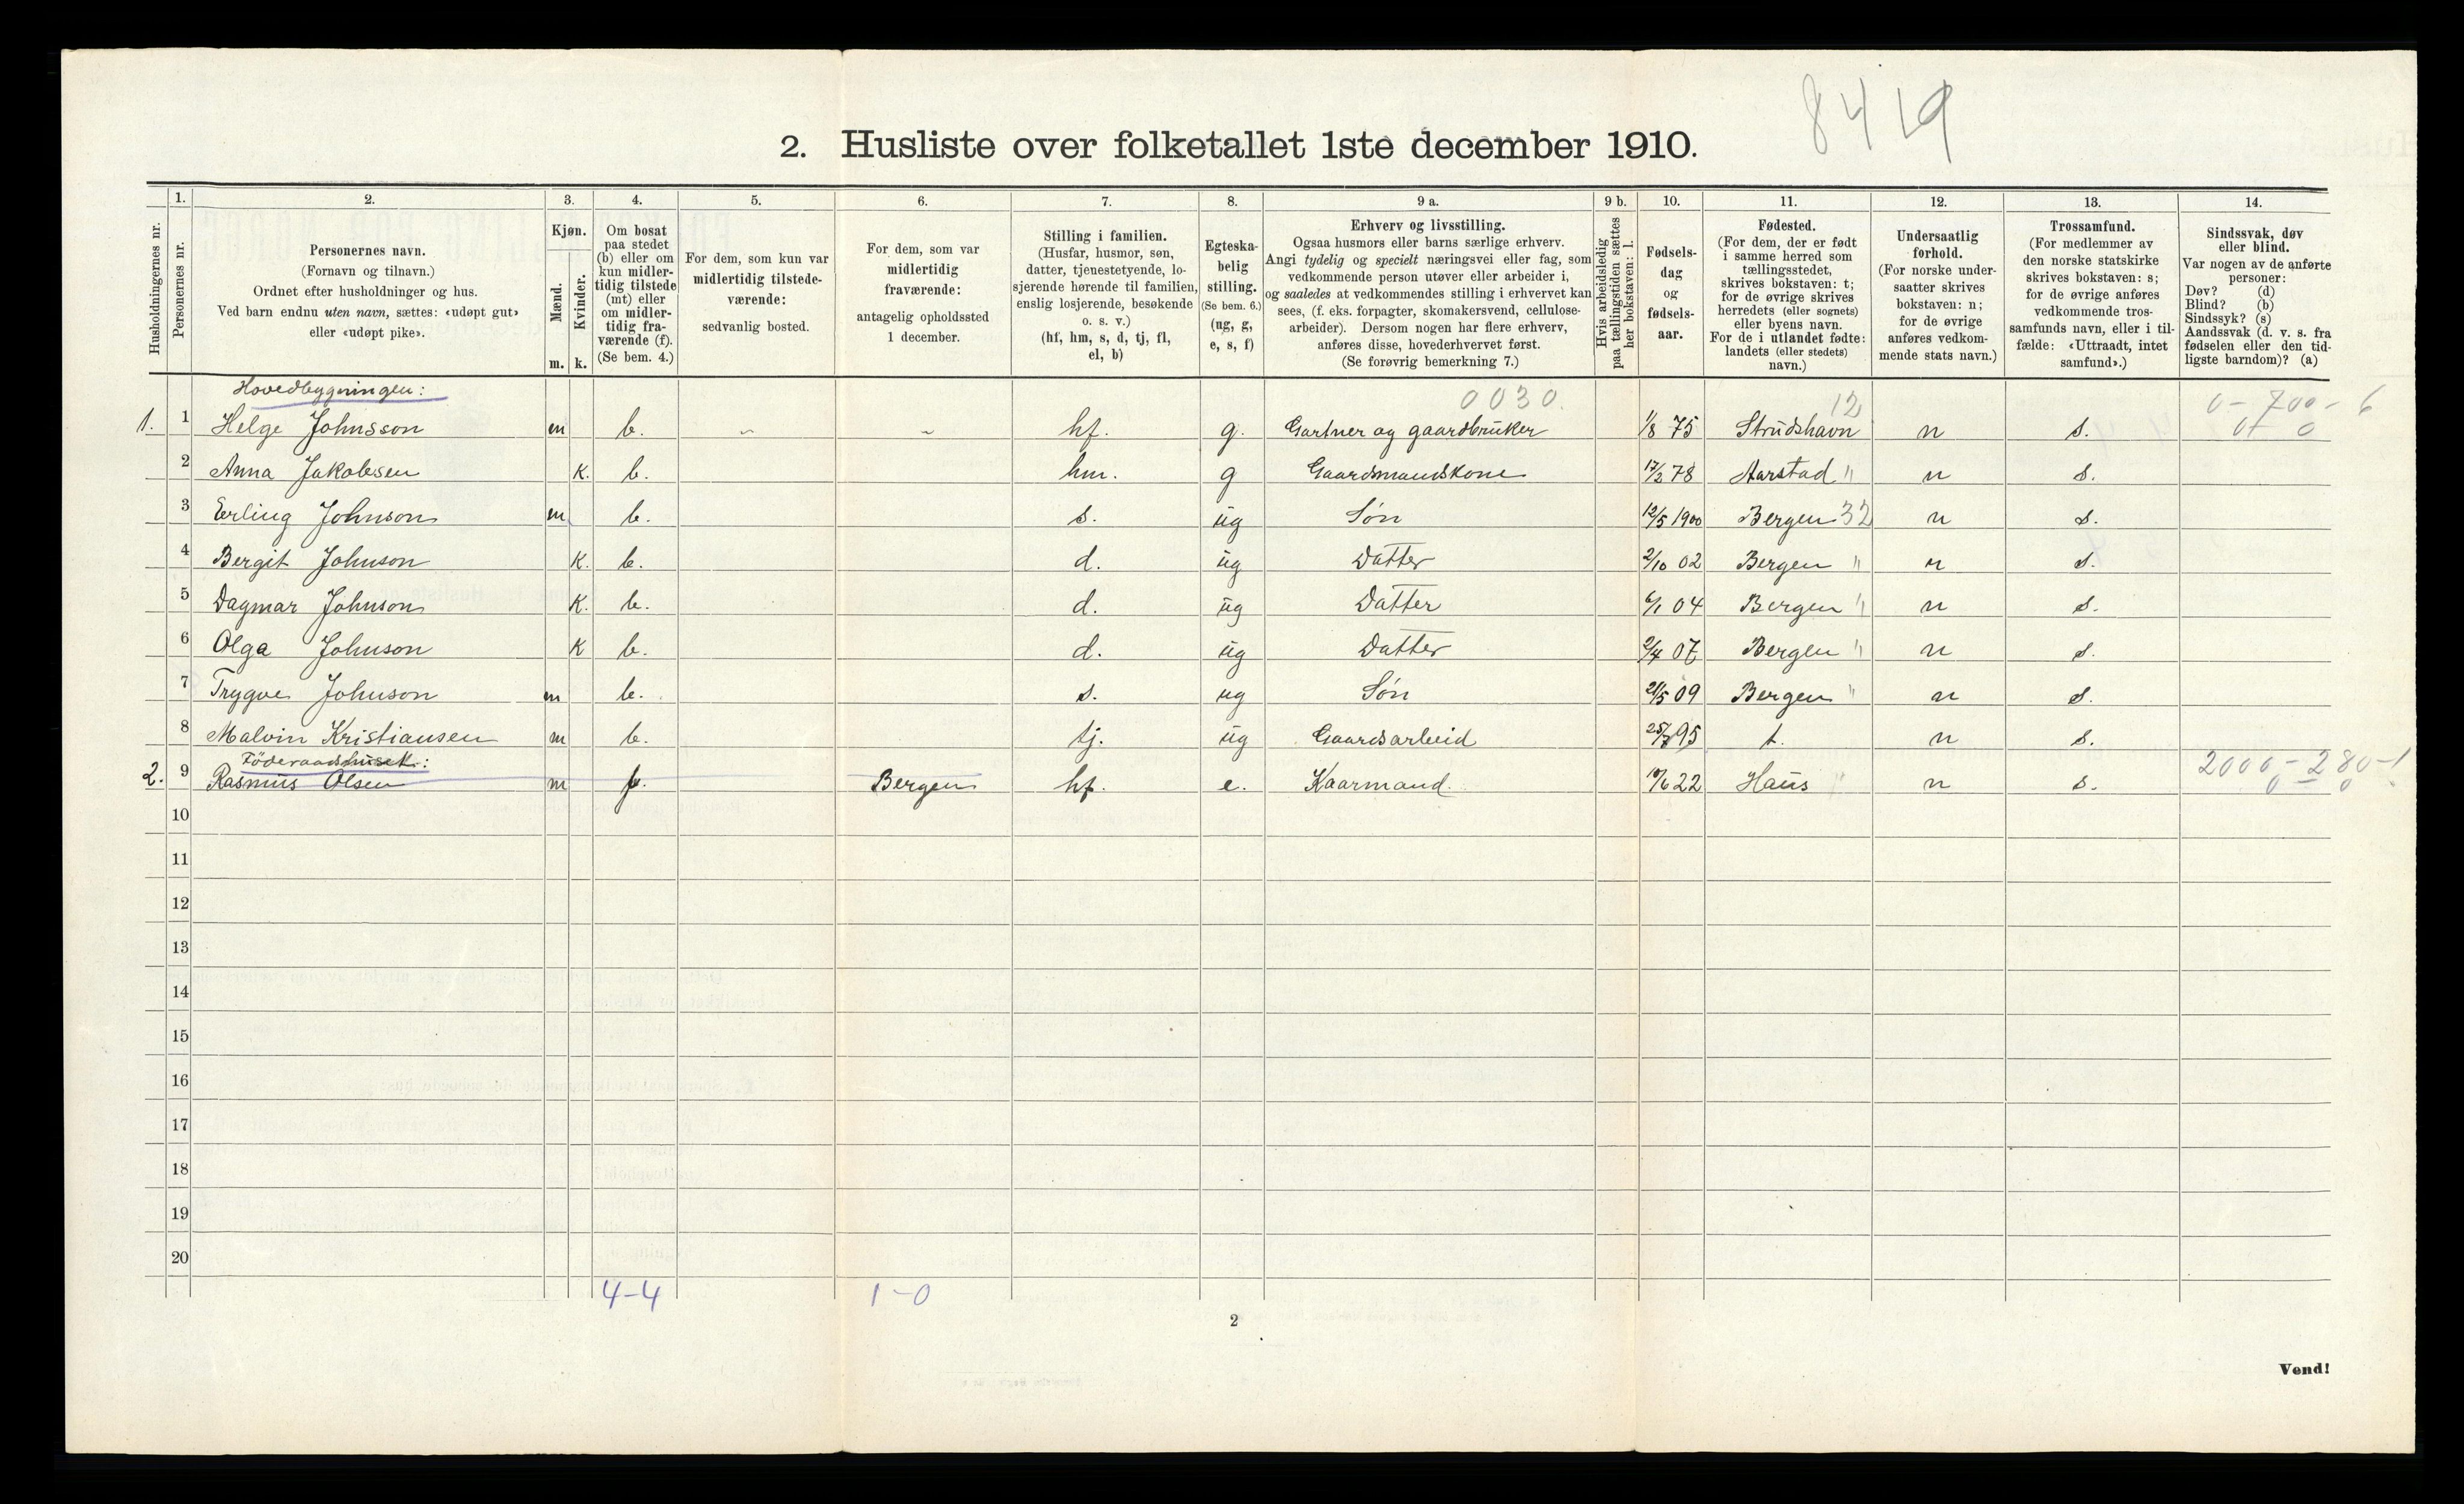 8419
2. Husliste over folketallet 1ste december 1910.
Husholdningernes nr.
1.
Personernes nr.
2.
Personernes navn.
(Fornavn og tilnavn.)
Ordnet efter husholdninger og hus.
Ved barn endnu uten navn, sættes: «udøpt gut»
eller «udøpt pike».
3.
Kjøn.
Mænd.
Kvinder.
m. k.
4.
Om bosat
paa stedet
(b) eller om
kun midler-
tidig tilstede
(mt) eller
om midler-
tidig fra-
værende (f).
(Se bem. 4.)
5.
For dem, som kun var
midlertidig tilstede-
værende:
sedvanlig bosted.
6.
For dem, som var
midlertidig
fraværende:
antagelig opholdssted
1 december.
7.
Stilling i familien.
(Husfar, husmor, søn,
datter, tjenestetyende, lo-
sjerende hørende til familien,
enslig losjerende, besøkende
o. s. v.)
(hf, hm, s, d, tj, fl,
el, b)
8.
Egteska-
belig
stilling.
(Se bem. 6.)
(ug, g,
e, s, f)
9 a.
Erhverv og livsstilling.
Ogsaa husmors eller barns særlige erhverv.
Angi tydelig og specielt næringsvei eller fag, som
vedkommende person utøver eller arbeider i,
og saaledes at vedkommendes stilling i erhvervet kan
sees, (f. eks. forpagter, skomakersvend, cellulose-
arbeider). Dersom nogen har flere erhverv,
anføres disse, hovederhvervet først.
(Se forøvrig bemerkning 7.)
9 b.
Hvis arbeidsledig
paa tællingstiden sættes
her bokstaven: l.
10.
Fødsels-
dag
og
fødsels-
aar.
11.
Fødested.
(For dem, der er født
i samme herred som
tællingsstedet,
skrives bokstaven: t;
for de øvrige skrives
herredets (eller sognets)
eller byens navn.
For de i utlandet fødte:
landets (eller stedets)
navn.)
12.
Undersaatlig
forhold.
(For norske under-
saatter skrives
bokstaven: n;
for de øvrige
anføres vedkom-
mende stats navn.)
13.
Trossamfund.
(For medlemmer av
den norske statskirke
skrives bokstaven: s;
for de øvrige anføres
vedkommende tros-
samfunds navn, eller i til-
fælde: «Uttraadt, intet
samfund».)
14.
Sindssvak, døv
eller blind.
Var nogen av de anførte
personer:
Døv? (d)
Blind? (b)
Sindssyk? (s)
Aandssvak (d. v. s. fra
fødselen eller den tid-
ligste barndom)? (a)
Hovedbygningen: 0030. 12 0-700-6
1. 1 Helge Johnsson m b. hf. g. Gartner og gaardbruker 1/8 75 Strudshavn n s. 0 0
2 Anna Jakobsen K. b. hm. g Gaardmandskone 17/2 78 Aarstad " n s.
3 Erling Johnson m b. s. ug Søn 12/5 1900 Bergen 32 n s.
4 Bergit Johnson K. b. d. ug Datter 2/10 02 Bergen " n s.
5 Dagmar Johnson K. b. d. ug Datter 6/1 04 Bergen " n s.
6 Olga Johnson K b. d. ug Datter 2/4 07 Bergen " n s.
7 Trygve Johnson m b. s. ug Søn 21/5 09 Bergen " n s.
8 Malvin Kristiansen m b. tj. ug Gaardsarbeid 95 t. n s.
Föderaadshuset: 2000-280-1
2. 9 Rasmus Olsen m f. Bergen hf. e. Kaarmand. 10/6 22 Haus n s. 0 - 0
10
11
12
13
14
15
16
17
18
19
20
4-4 1-0
2
Vend!